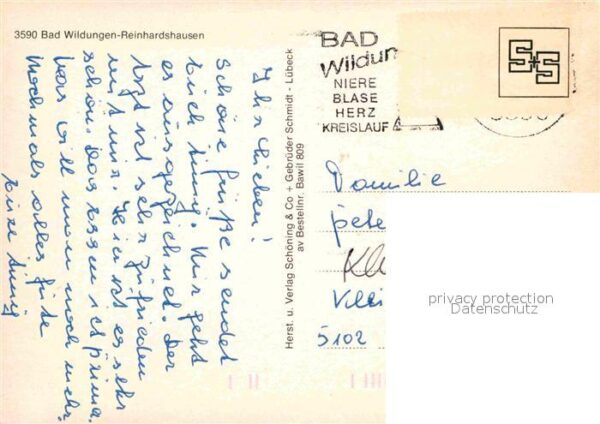 3590 Bad Wildungen-Reinhardshausen
Ihr Lieben!
Schöne Grüße sendet
Euch Anny. Mir geht
es ausgezeichnet. Der
Arzt ist sehr zufrieden
mit mir. Hier ist es sehr
schön. Das Essen ist prima.
Was will man noch mehr.
Nochmals alles Gute
Eure Anny
Herst. u. Verlag Schöning & Co + Gebrüder Schmidt - Lübeck
av Bestellnr. Bawil 809
BAD
Wildun
NIERE
BLASE
HERZ
KREISLAUF
S+S
Familie
Pete
Kl
5102
privacy protection
Datenschutz